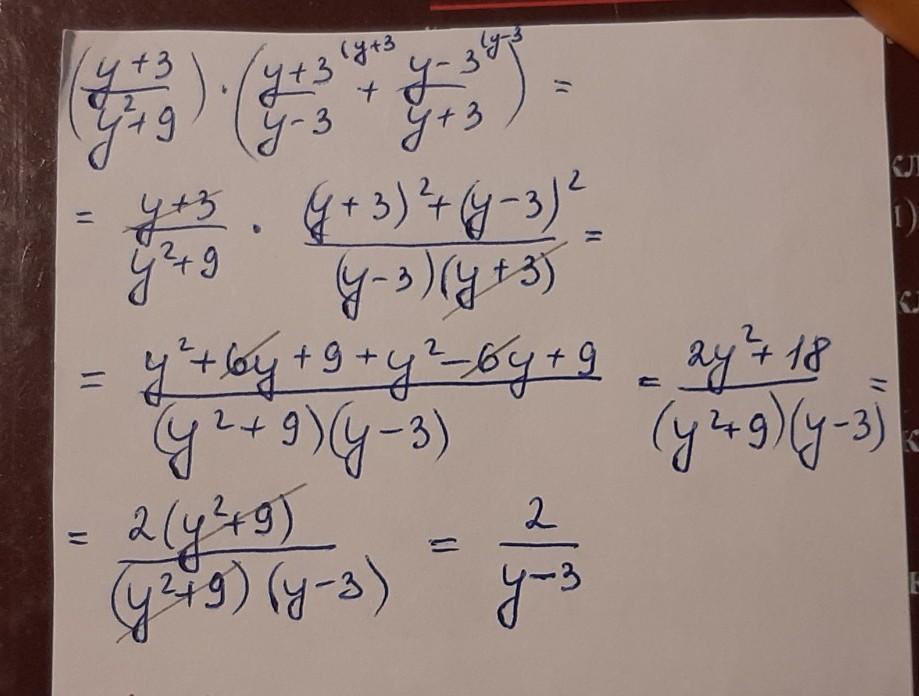 ((y+3)/(y²+9)) · ((y+3)/(y-3) ⁽ʸ⁺³ + (y-3)/(y+3) ⁽ʸ⁻³) =
= (y+3)/(y²+9) · ((y+3)²+(y-3)²)/((y-3)(y+3)) =
= (y²+6y+9+y²-6y+9)/((y²+9)(y-3)) = (2y²+18)/((y²+9)(y-3)) =
= 2(y²+9)/((y²+9)(y-3)) = 2/(y-3)